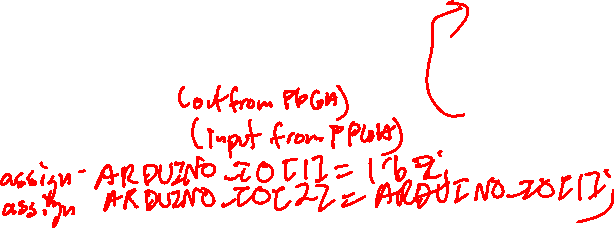 (out from FPGA)
(input from FPGA)
assign ARDUINO_IO[1] = 1'bz;
assign ARDUINO_IO[2] = ARDUINO_IO[1];